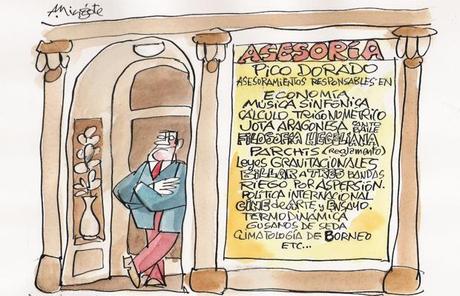 ASESORÍA
PICO DORADO
ASESORAMIENTOS RESPONSABLES EN
ECONOMÍA
MÚSICA SINFÓNICA
CÁLCULO TRIGONOMÉTRICO
JOTA ARAGONESA CANTO BAILE
FILOSOFÍA HEGELIANA
PARCHÍS (Reglamento)
GRAVITACIONALES
BILLAR A TRES BANDAS
RIEGO POR ASPERSIÓN.
POLÍTICA INTERNACIONAL
CINE de ARTE y ENSAYO.
TERMODINÁMICA
GUSANOS DE SEDA
CLIMATOLOGÍA DE BORNEO
ETC...